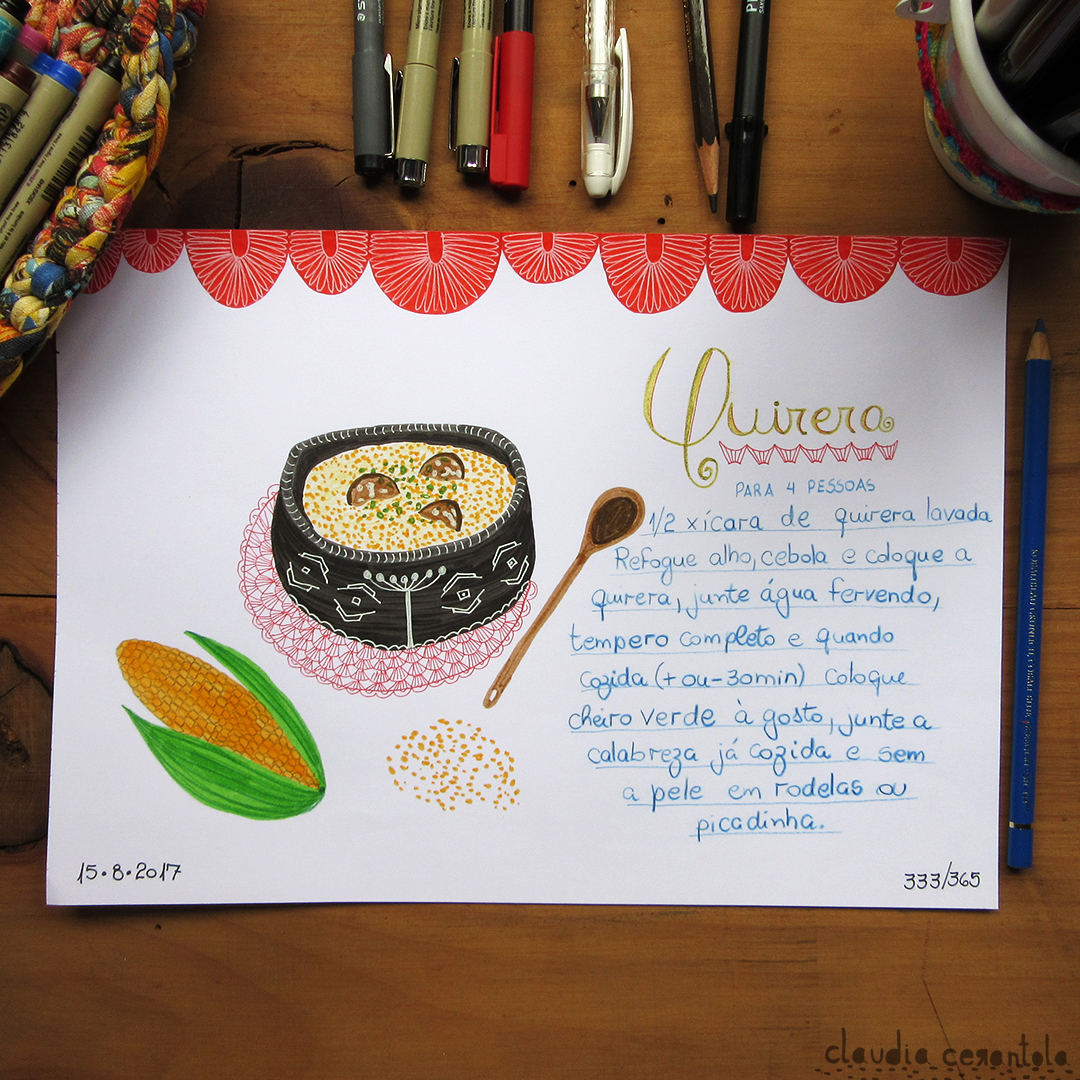 Quirera
PARA 4 PESSOAS
1/2 xícara de quirera lavada
Refogue alho, cebola e coloque a
quirera, junte água fervendo,
tempero completo e quando
cozida (+ou-30min) coloque
cheiro verde à gosto, junte a
calabreza já cozida e sem
a pele em rodelas ou
picadinha.
15.8.2017
333/365
claudia cerantola